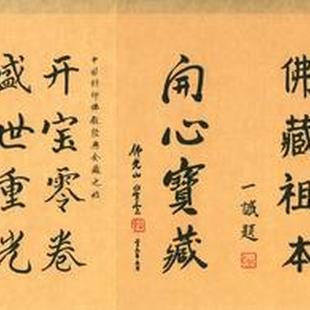 佛藏祖本
一誠題
開心寶藏
佛光山 星雲
中國影印佛教經典金藏之始
开宝零卷
盛世重光